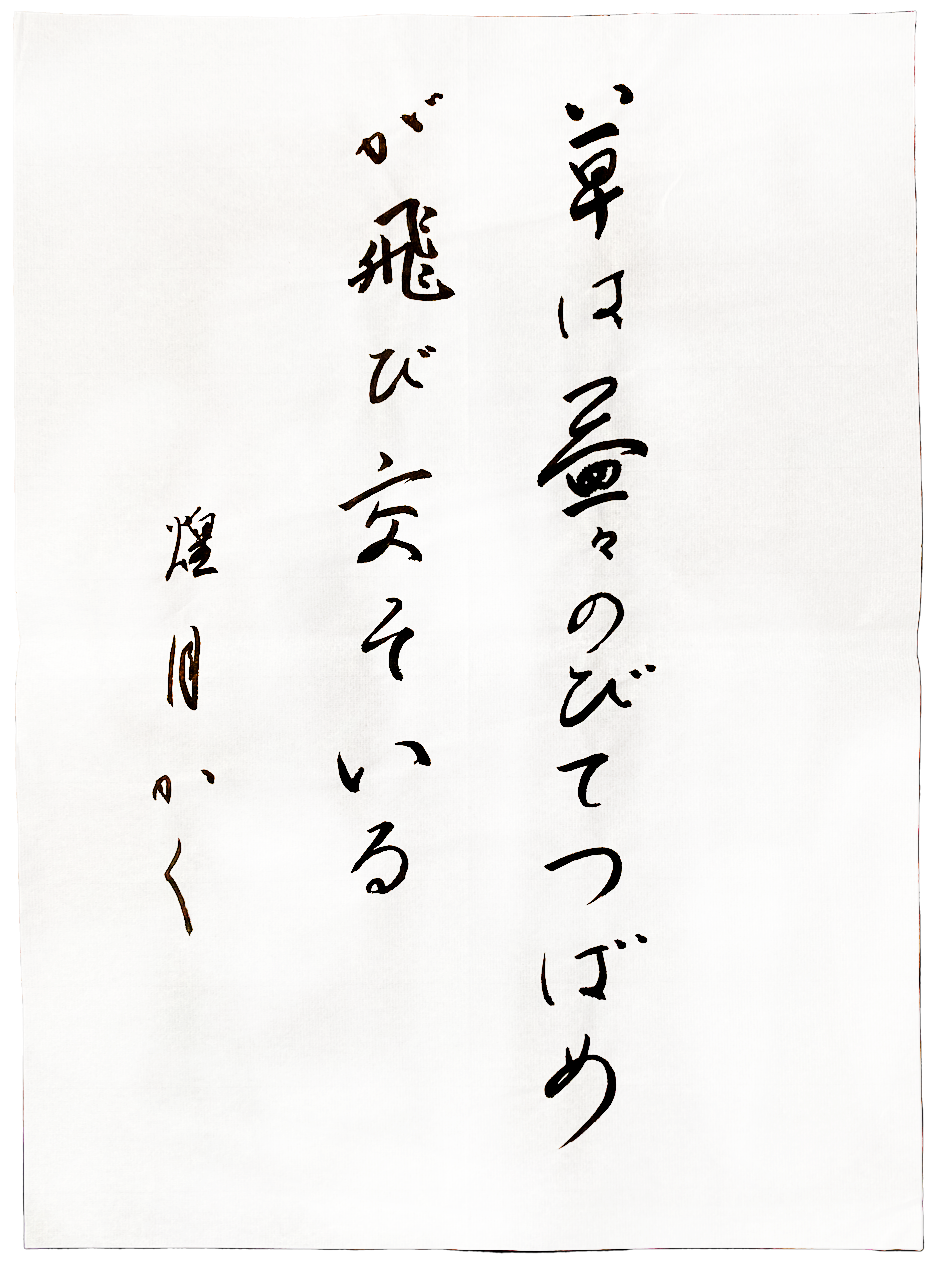 草は益々のびてつばめ
が飛び交そいる
煌月かく